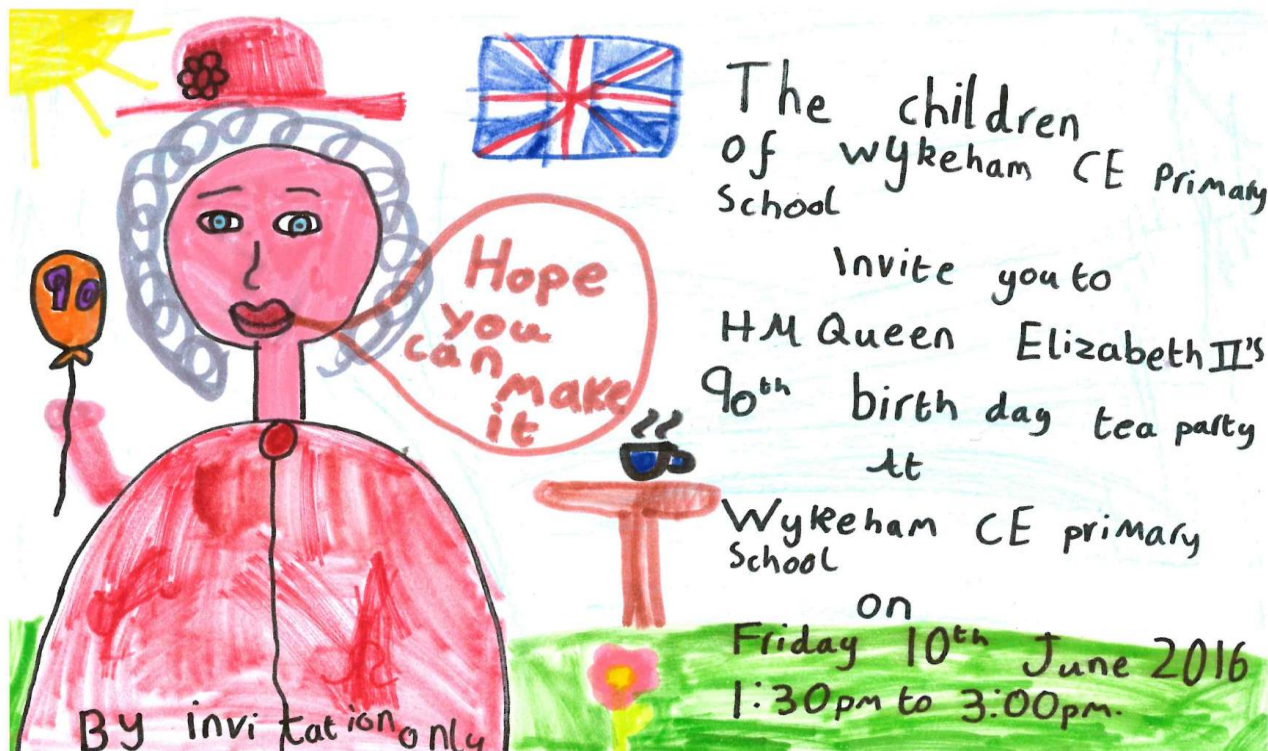 90
Hope
you
can
make
it
By invitation only
The children
of Wykeham CE Primary
School
Invite you to
HM Queen Elizabeth II's
90th birth day tea party
At
Wykeham CE primary
School
on
Friday 10th June 2016
1:30pm to 3:00pm.